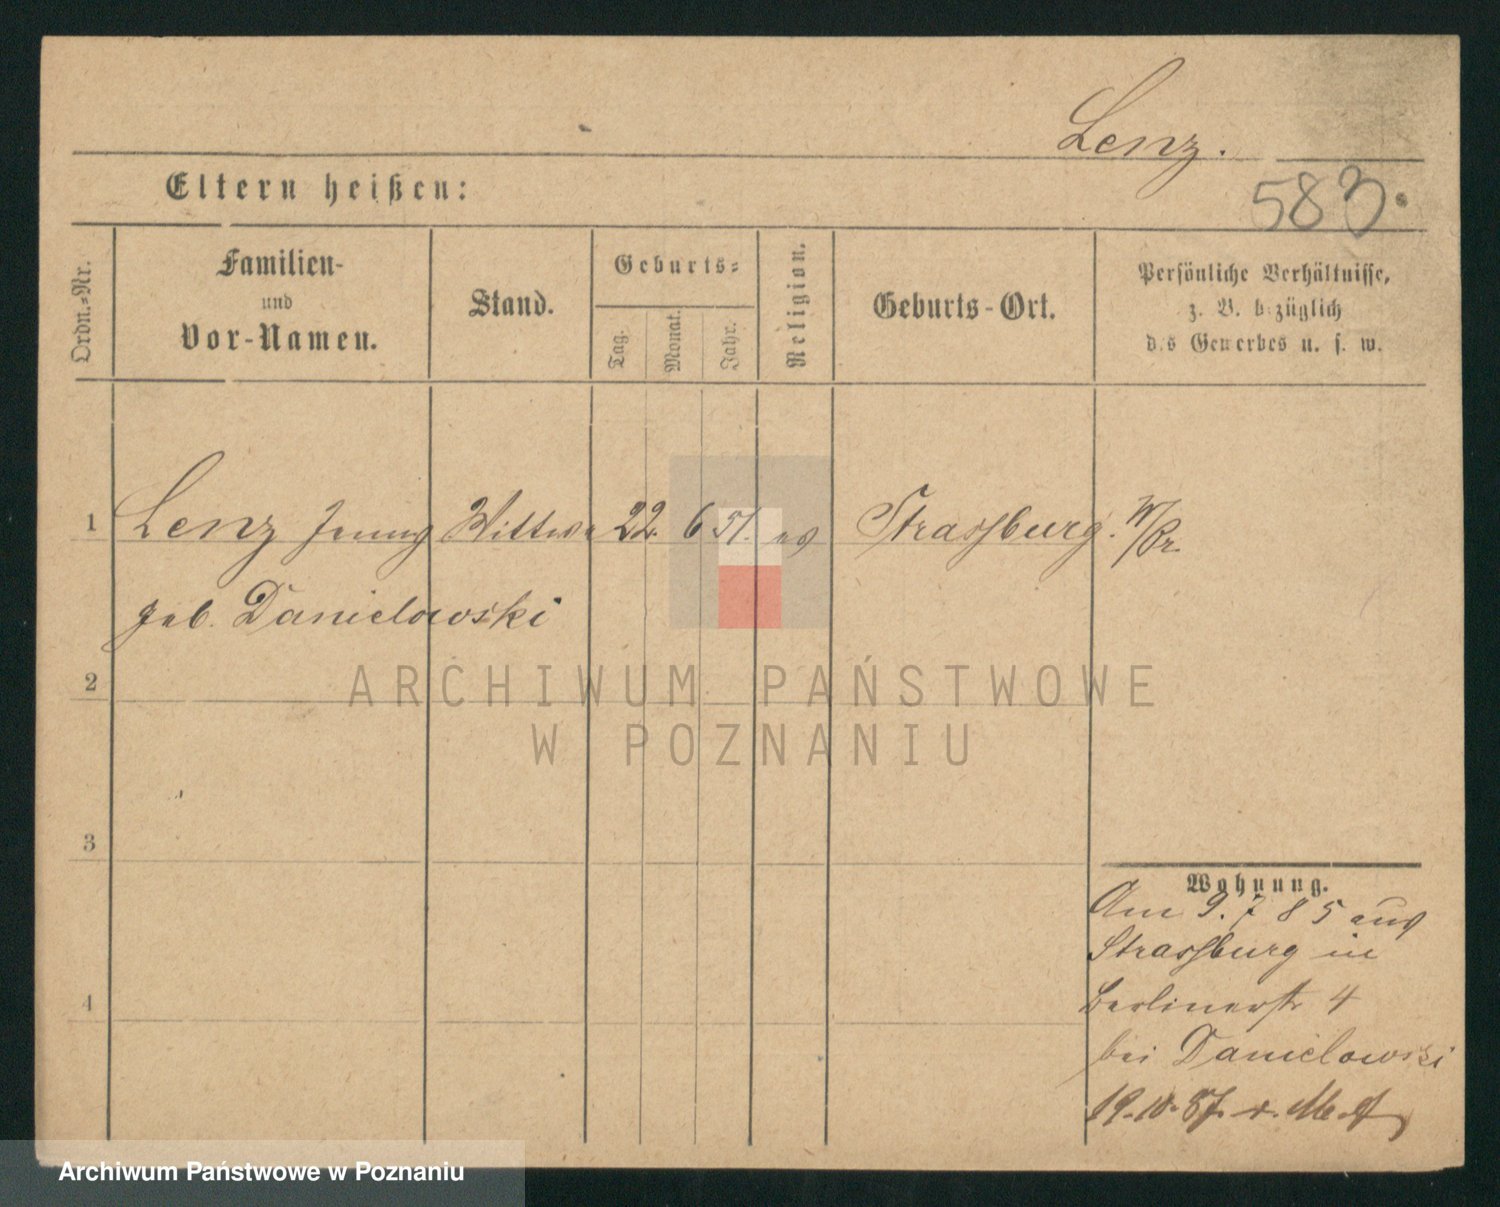 Lenz.
583.
Eltern heißen:
Ordn.=Nr.
Familien-
und
Vor-Namen.
Stand.
Geburts=
Tag.
Monat.
Jahr.
Religion.
Geburts-Ort.
Persönliche Verhältnisse,
z. B. bezüglich
des Gewerbes u. s. w.
1 Lenz Jenny Wittwe 22. 6 51. ev Strassburg. W/Pr.
geb. Danielowski
2
3
4
Wohnung.
Am 9. 7 85 aus
Strassburg in
Berlinerstr 4
bei Danielowski
19.10.87.
ARCHIWUM PAŃSTWOWE
W POZNANIU
Archiwum Państwowe w Poznaniu